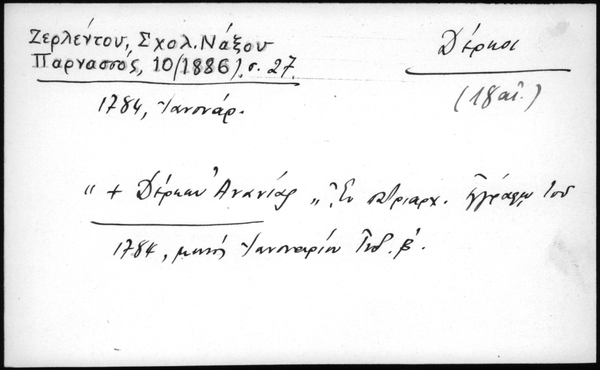 Ζερλέντου, Σχολ. Νάξου
Παρνασσός, 10 (1886), σ. 27.
Δέρκοι
(18 αἰ.)
1784, Ἰανουάρ.
"+ Δέρκων Ἀνανίας" Ἐν πατριαρχ. ἐγγράφῳ τοῦ
1784, μηνὸς Ἰανουαρίου Ἰνδ. β'.